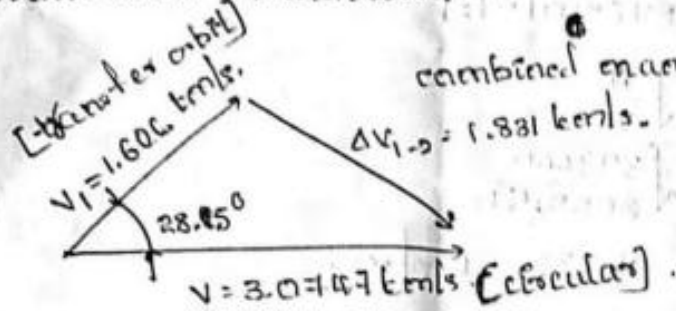 [transfer orbit]
V₁ = 1.606 km/s.
combined
ΔV₁₋₂ = 1.831 km/s.
28.85°
V = 3.0747 km/s [circular].